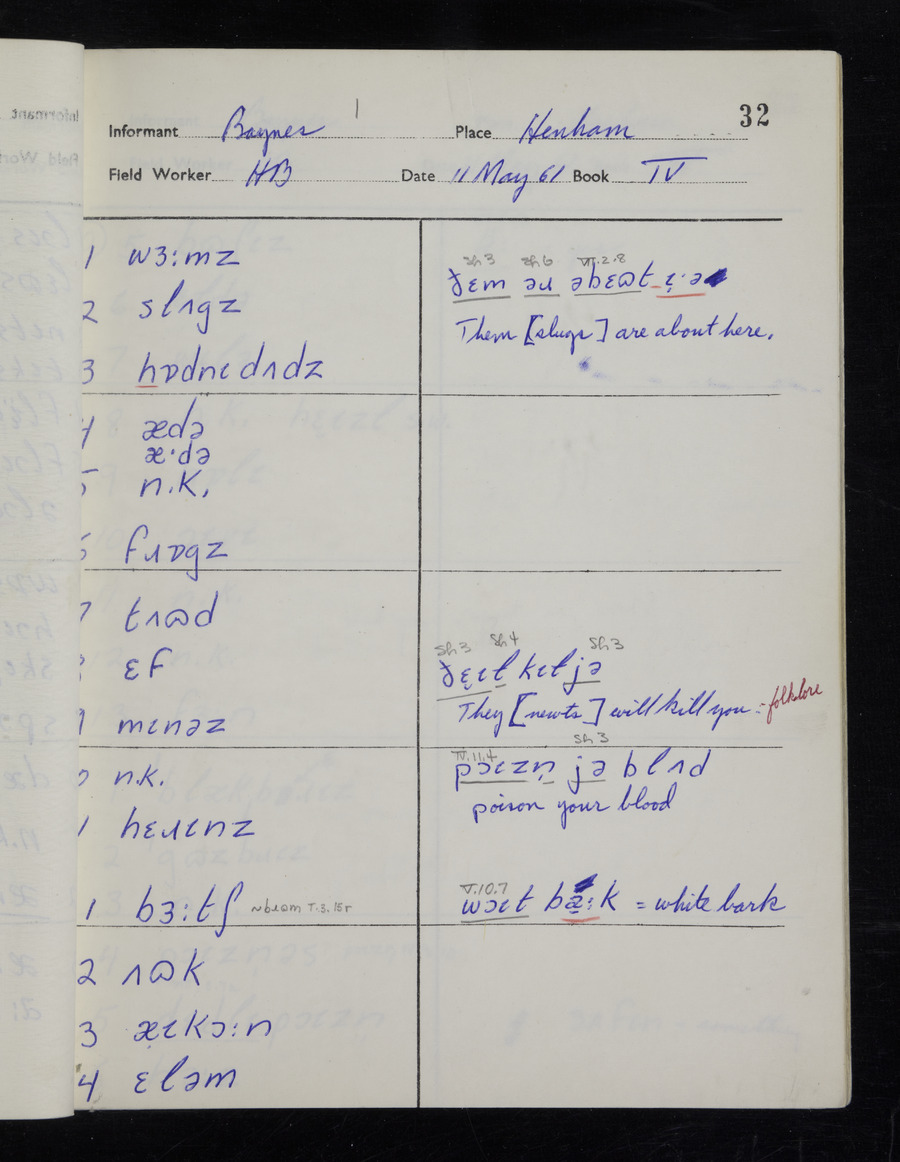 32
Informant Baynes Place Henham
Field Worker HB Date 11 May 61 Book IV
1 wɜ:mz
2 slʌgz
3 hɒdnɩdʌdz
4 ædə
æ·də
n.k.
fɹɒgz
7 tʌɷd
ɛf
mɩnəz
n.k.
1 hɛɹɩnz
1 bɜ:tʃ ~bɹɷm V.3.15r
2 ʌɷk
3 æ̣ɩkɔ:n
4 ɛləm
sh 3 sh 6 VI.2.8
ðɛm əɹ əbɛɷt ɩ̣·ə
Them [slugs] are about here.
Sh 3 Sh 4 Sh 3
ðɛ̣ɩɫ kɩɫ jə
They [newts] will kill you - folklore
IV.11.4 Sh 3
pɔɩzn̩ jə blʌd
poison your blood
V.10.7
wɔɩt bæ̣:k = white bark